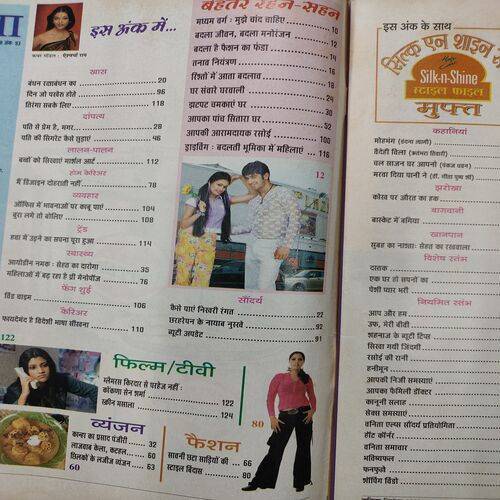 इस अंक में...
कवर मॉडल : ऐश्वर्या राय
खास
बंधन रक्षाबंधन का 20
दिन जो परवेश होते 96
तिरंगा सबके लिए 118
दांपत्य
पति से प्रेम है, मगर 28
पति की सिगरेट कैसे छुड़ाएं 46
लालन-पालन
बच्चों को सिखाएं मार्शल आर्ट 112
होम कैरिअर
मैं डिजाइन दोहराती नहीं 78
व्यवहार
ऑफिस में भावनाओं पर काबू पाएं 104
बुरा लगे तो बोलिए 108
ट्रेंड
हवा में उड़ने का सपना पूरा हुआ 114
स्वास्थ्य
आयोडीन नमक : सेहत का दारोगा 35
महिलाओं में बढ़ रहा है प्री मेनोपॉज 76
फेंग शुई
विंड चाइम 106
कैरिअर
फायदेमंद है विदेशी भाषा सीखना 110
बेहतर रहन-सहन
मध्यम वर्ग : मुझे चांद चाहिए 10
बदला जीवन, बदला मनोरंजन 12
बदला है फैशन का फंडा 14
तनाव नियंत्रण 16
रिश्तों में आता बदलाव 18
घर संवारे घरवाली 24
झटपट चमकाएं घर 30
आपका पांच सितारा घर 52
आपकी आरामदायक रसोई 100
ड्राइविंग : बदलती भूमिका में महिलाएं 116
12
सौंदर्य
कैसे पाएं निखरी रंगत 22
छरहरेपन के नायाब नुस्खे 92
ब्यूटी अपडेट 91
122
फिल्म/टीवी
ग्लैमरस किरदार से परहेज नहीं :
कोंकणा सेन शर्मा 122
स्क्रीन मसाला 124
व्यंजन
कान्हा का प्रसाद पंजीरी 32
लाजवाब केला, कटहल 60
छिलकों के लजीज व्यंजन 63
60
फैशन
सावनी छटा साड़ियों की 66
स्टाइल बिंदास 80
80
इस अंक के साथ
सिल्क एन शाइन
Silk-n-Shine
स्टाइल फाइल
मुफ्त
कहानियां
मोहभंग
वैदेही विला
चल साजन घर आपनो
मरवा दिया पानी ने
झरोखा
कोख पर औरत का हक
बागबानी
बास्केट में बगिया
खानपान
सुबह का नाश्ता: सेहत का रखवाला
विशेष स्तंभ
दस्तक
एक घर हो सपनों का
पेशी प्यार भरी
नियमित स्तंभ
आप और हम
उफ, मेरी बीवी
शहनाज के ब्यूटी टिप्स
सिखा गयी जिंदगी
रसोई की रानी
हनीमून
आपकी निजी समस्याएं
आपका फैमिली डॉक्टर
कानूनी सलाह
सेक्स समस्याएं
वनिता एल्प्स सौंदर्य प्रतियोगिता
हॉट कॉर्नर
वनिता समाचार
भविष्यफल
फनफुले
शॉपिंग विंडो